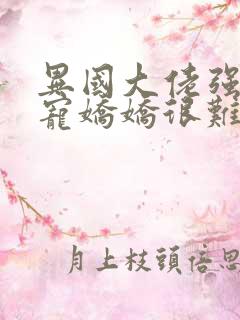 異國大佬强
寵嬌嬌很難
月上枝頭倍思